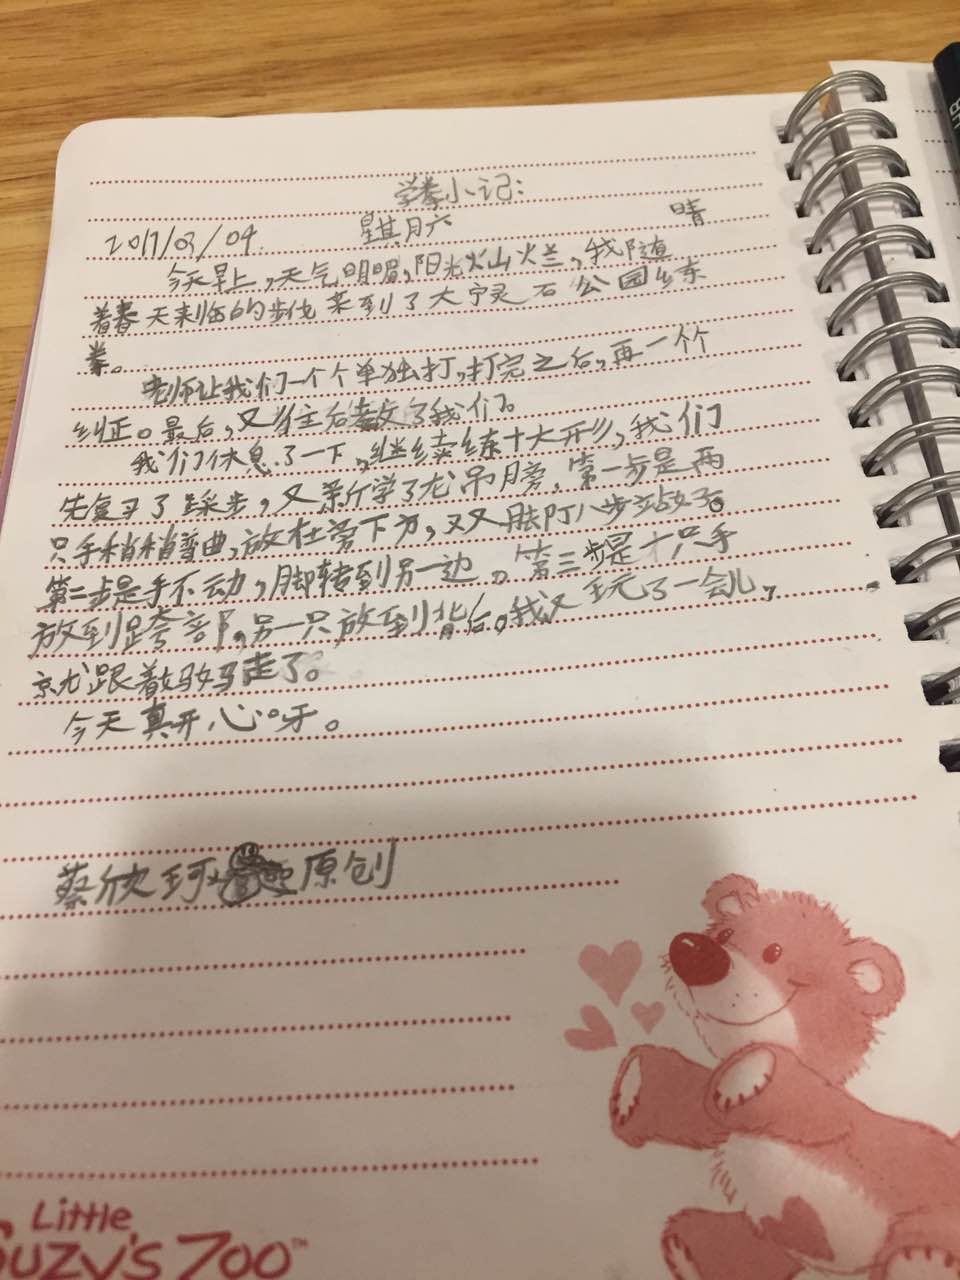 学拳小记：
2017/03/04. 星期六 晴
今天早上，天气明媚，阳光灿烂，我随
着春天来临的步伐来到了大宁灵石公园练
拳。
老师让我们一个个单独打，打完之后，再一个个
纠正。最后，又往后教了我们。
我们休息了一下，继续练十大形，我们
先复习了踩步，又新学了龙吊膀，第一步是两
只手稍稍弯曲，放在旁下方，双脚丁八步站好。
第二步是手不动，脚转到另一边。第三步是一只手
放到跨部，另一只放到背后。我又玩了一会儿，
就跟着妈妈走了。
今天真开心呀。
蔡欣珂 原创
Little
Suzy's Zoo™